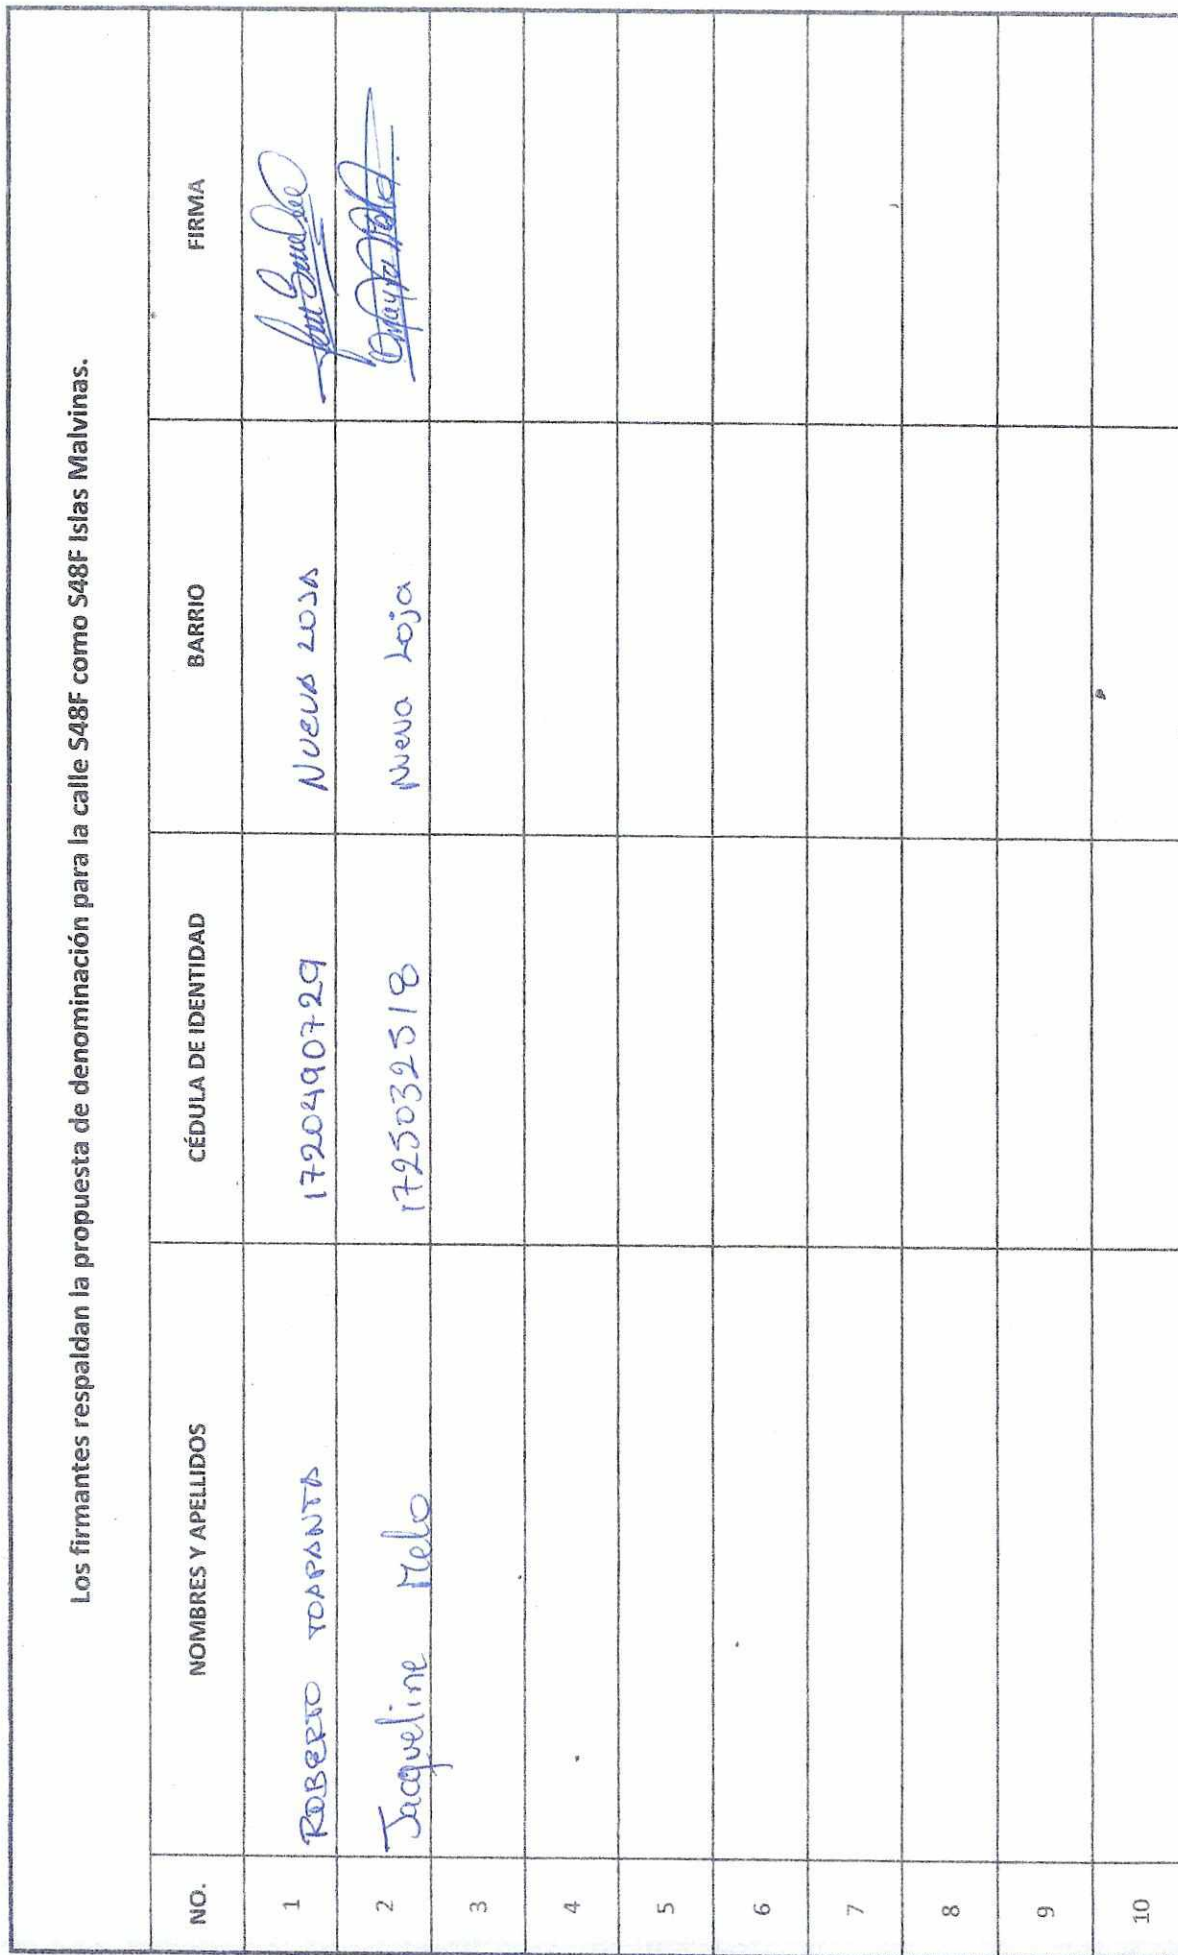 Los firmantes respaldan la propuesta de denominación para la calle S48F como S48F Islas Malvinas.
NO. NOMBRES Y APELLIDOS CÉDULA DE IDENTIDAD BARRIO FIRMA
1 ROBERTO TOAPANTA 1720490729 NUEVA LOJA
2 Jacqueline Melo 1725032518 Nueva Loja
3
4
5
6
7
8
9
10